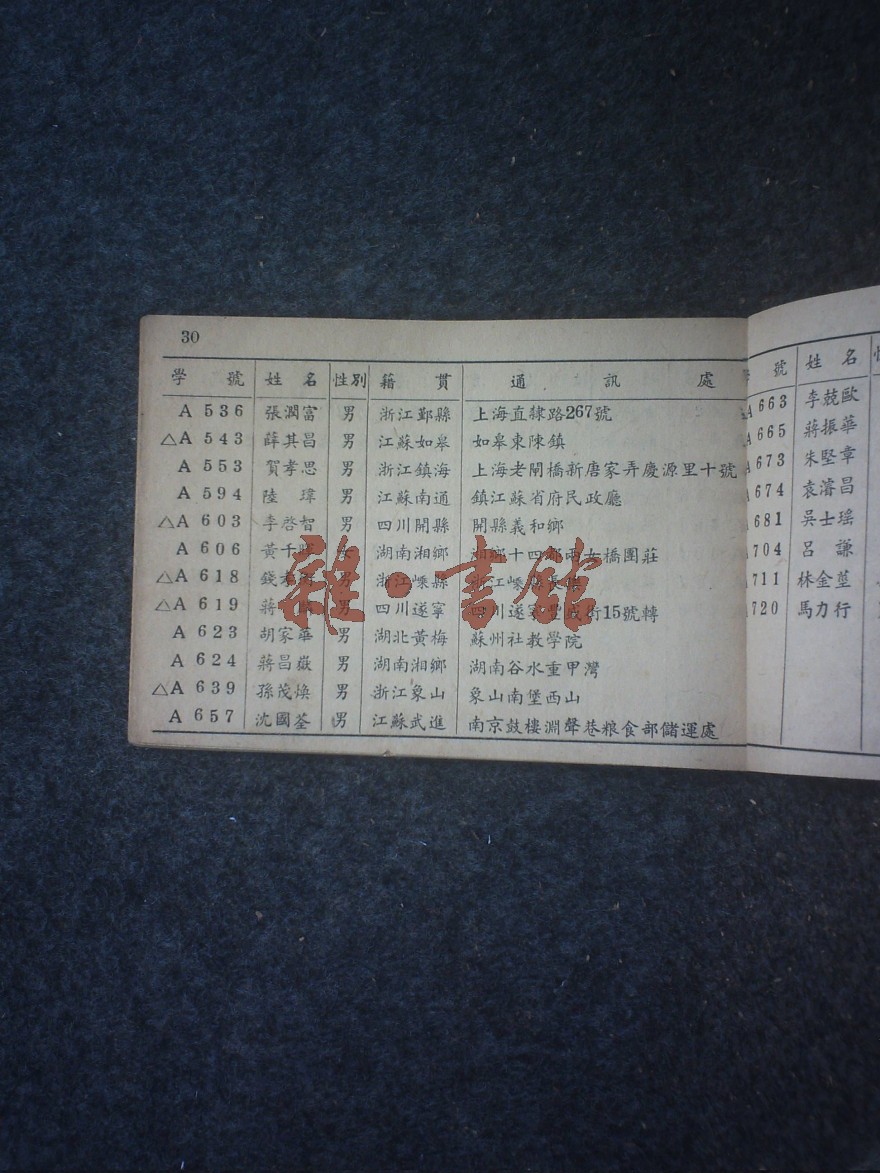 30
學 號 姓 名 性別 籍 貫 通 訊 處
A 536 張潤富 男 浙江鄞縣 上海直隸路267號
△A 543 薛其昌 男 江蘇如皋 如皋東陳鎮
A 553 賀孝思 男 浙江鎮海 上海老閘橋新唐家弄慶源里十號
A 594 陸 瑋 男 江蘇南通 鎮江蘇省府民政廳
△A 603 李啓智 男 四川開縣 開縣義和鄉
A 606 黃千 湖南湘鄉 湘鄉十四都兩女橋團莊
△A 618 錢 男 浙江嵊縣 浙江嵊縣長樂
△A 619 蔣 男 四川遂寧 四川遂寧豐 街15號轉
A 623 胡家華 男 湖北黃梅 蘇州社教學院
A 624 蔣昌嶽 男 湖南湘鄉 湖南谷水重甲灣
△A 639 孫茂煥 男 浙江象山 象山南堡西山
A 657 沈國荃 男 江蘇武進 南京鼓樓淵聲巷粮食部儲運處
號 姓 名
A 663 李兢歐
A 665 蔣振華
A 673 朱堅章
A 674 袁濬昌
681 吳士瑶
704 呂 謙
711 林金莖
720 馬力行
雜·書館